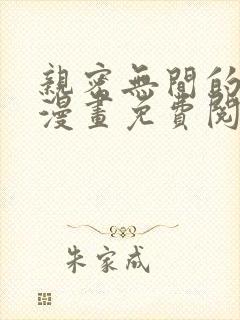 親密無間的
漫畫免費閱
朱家成